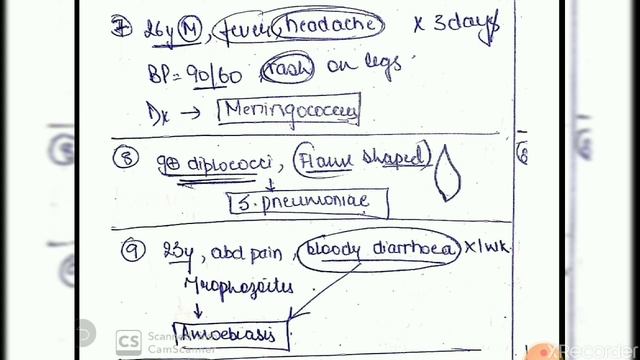 7 26y M, fever, headache x 3days
BP = 90/60 rash on legs.
Dx → Meningococcus
8 g⊕ diplococci, Flame shaped
↓
S. pneumoniae
9 23y, abd pain, bloody diarrhoea x1wk
Trophozoites
↓
Amoebiasis
CS
CamScanner
RECORDER